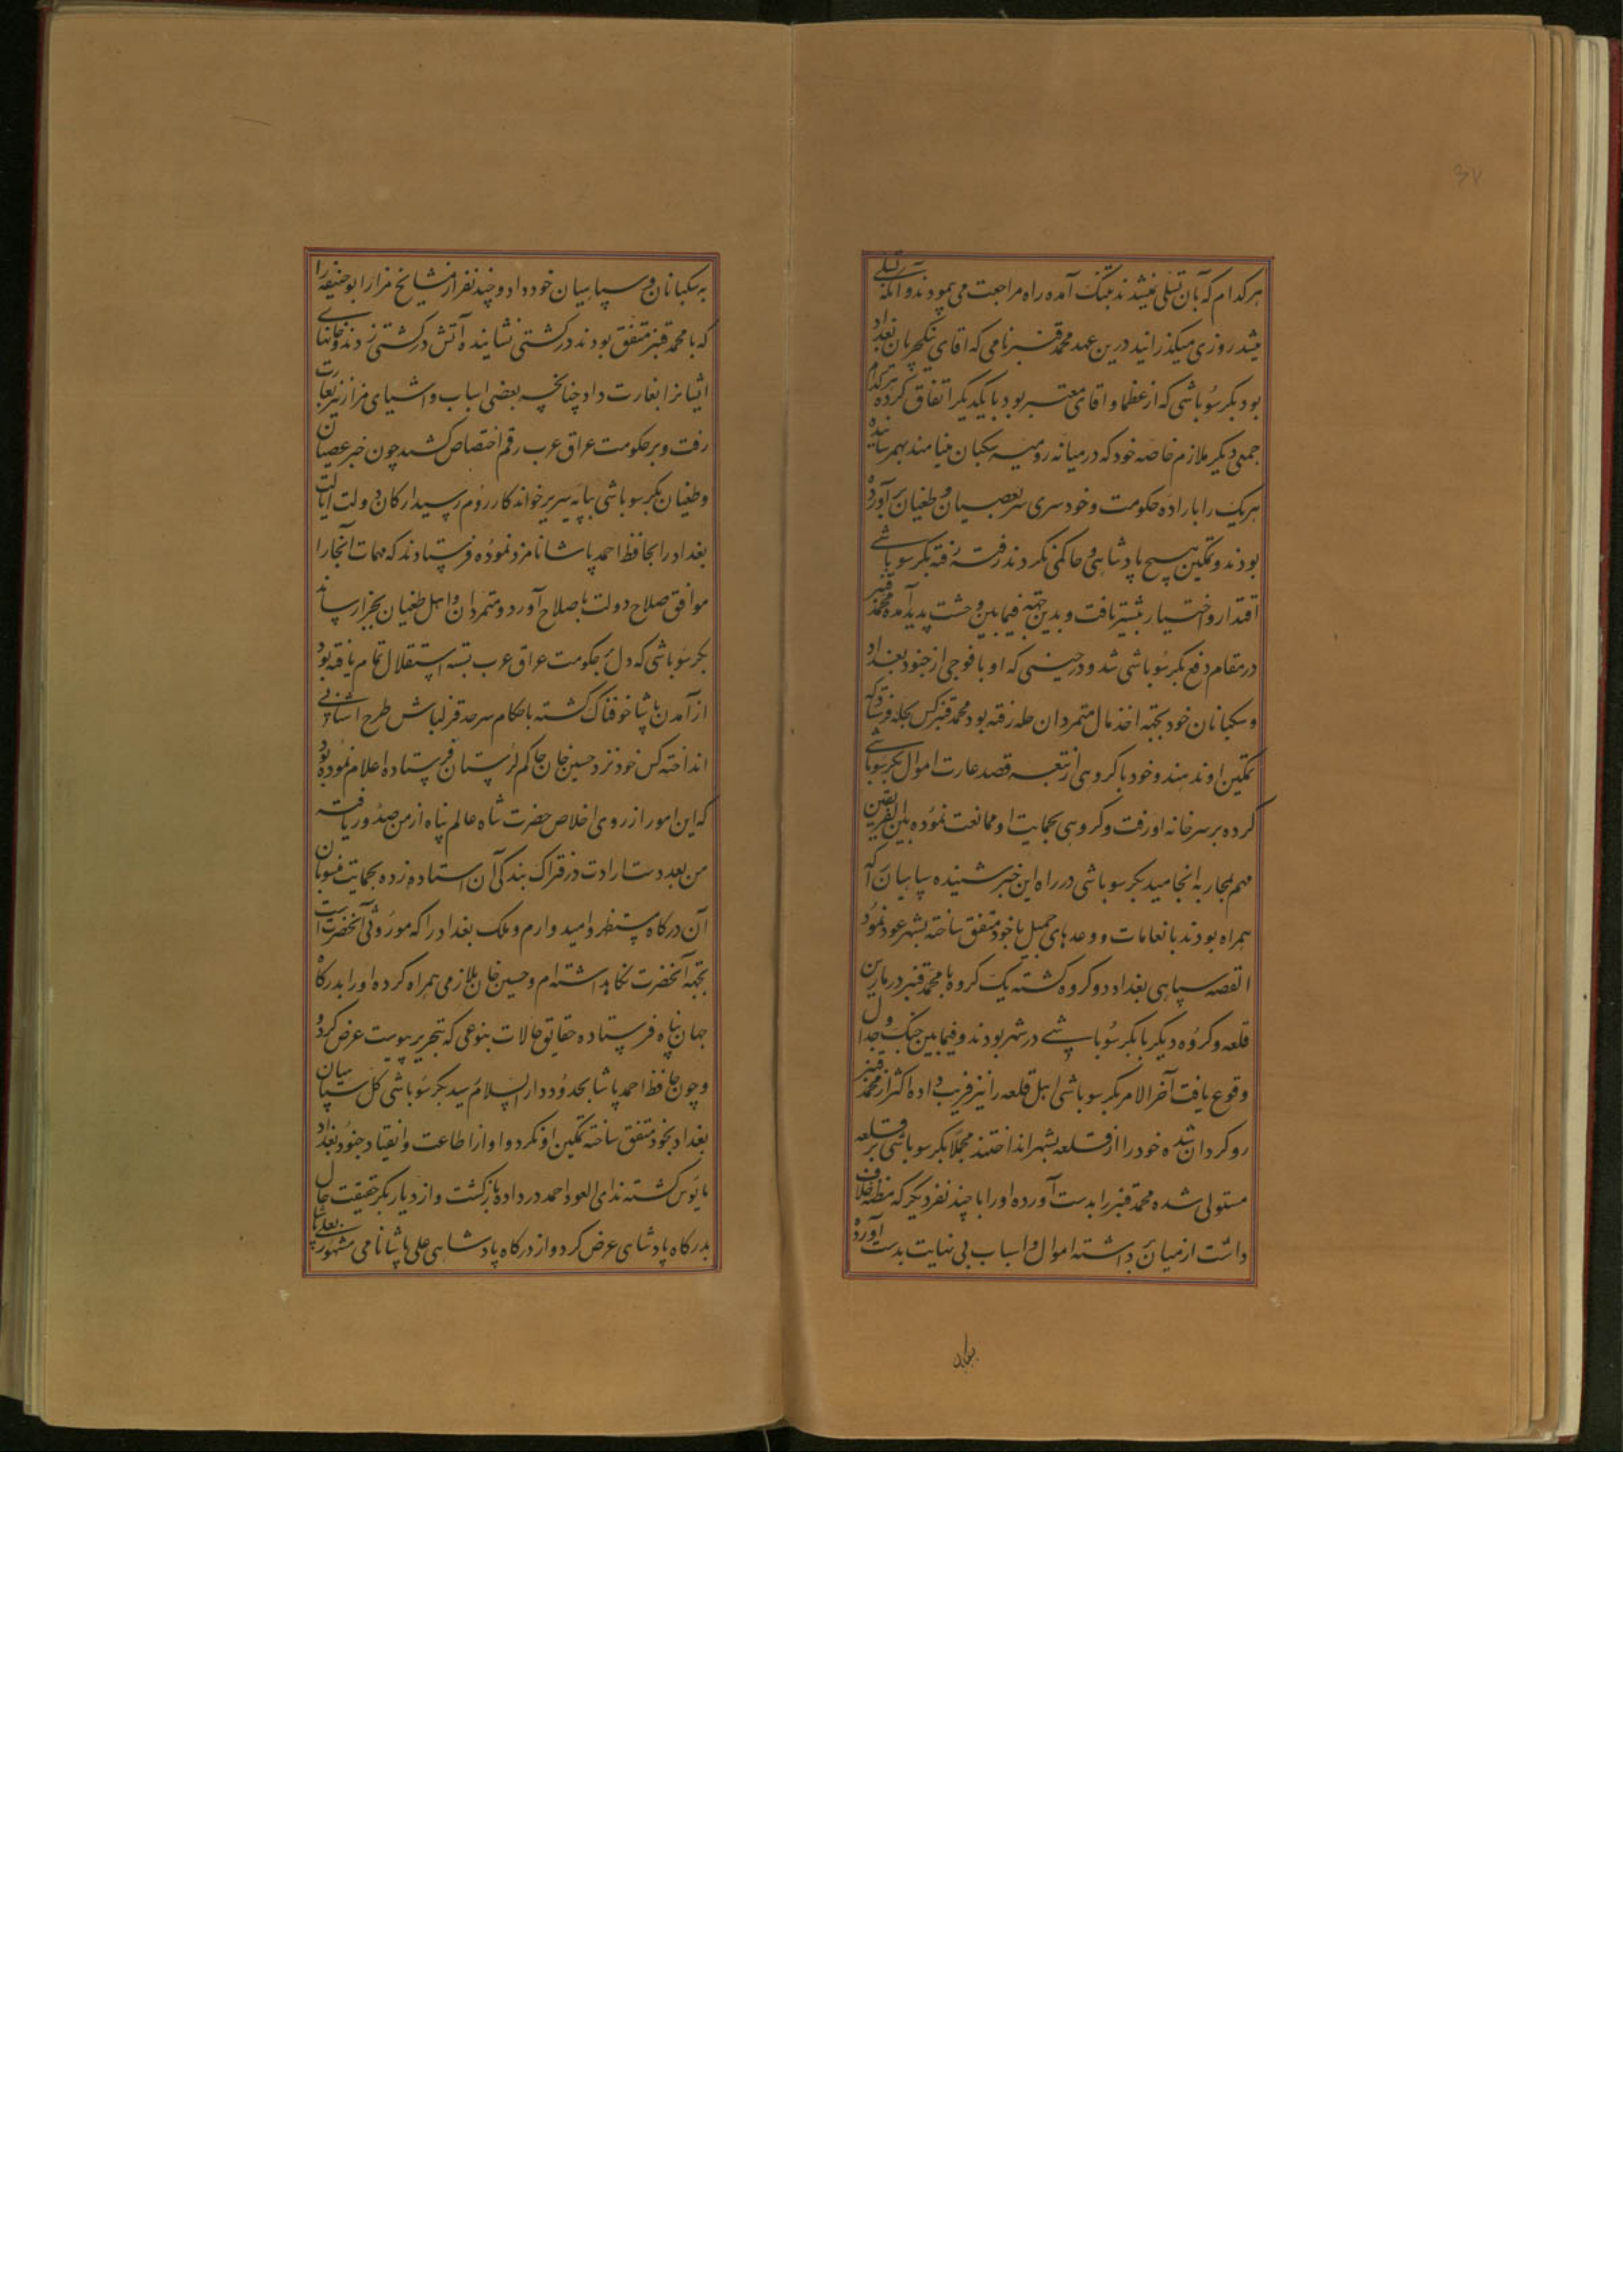 ۳۷
هر کدام که بآن تسلی نمیشدند بتنگ آمده راه مراجعت می پیمودند و آنکه تسلی
میشد روزی میگذرانید درین عهد محمد قنبر نامی که اقای ینکچریان بغداد
بود بکر سوباشی که از عظما و اقای معتبر بود با یکدیگر اتفاق کرده هر کدام
جمعی دیگر ملازم خاصه خود که در میانه رومیه سکبان مینامند بهمرسانیده
هریک را باراده حکومت و خودسری سر بعصیان و طغیان برآورده
بودند و تمکین هیچ پادشاهی و حاکمی نکردند رفته رفته بکر سوباشی
اقتدار و اختیار بیشتر یافت و بدین جهة فیمابین وحشت پدید آمده محمد قنبر
در مقام دفع بکر سوباشی شد و در حینی که او با فوجی از جنود بغداد
و سکبانان خود بجهة اخذ مال متمردان حله رفته بود محمد قنبر کس بحله فرستاد که
تمکین او ندهند و خود با گروهی از تبعه قصد غارت اموال بکر سوباشی
کرده بر سر خانه او رفت و گروهی بحمایت او ممانعت نموده بین الفریقین
مهم بمحاربه انجامید بکر سوباشی در راه این خبر شنیده سپاهیان را که
همراه بودند بانعامات و وعدهای جمیل با خود متفق ساخته بشهر عود نمود
القصه سپاهی بغداد دو گروه گشته یک گروه با محمد قنبر در نارین
قلعه و گروه دیگر با بکر سوباشی در شهر بودند و فیمابین جنگ و جدال
وقوع یافت آخر الامر بکر سوباشی اهل قلعه را نیز فریب داده اکثر از محمد قنبر
روگردان شده خود را از قلعه بشهر انداختند مجملا بکر سوباشی بر قلعه
مستولی شده محمد قنبر را بدست آورده او را با چند نفر دیگر که مظنه خلاف
داشت از میان برداشته اموال و اسباب بی نهایت بدست آورده
به سکبانان و سپاهیان خود داد و چند نفر از مشایخ مزار ابو حنیفه را
که با محمد قنبر متفق بودند در کشتی نشانیده آتش در کشتی زدند و خانهای
ایشانرا بغارت داد چنانچه بعضی اسباب و اشیای مزار نیز بغارت
رفت و بر حکومت عراق عرب رقم اختصاص کشید چون خبر عصیان
و طغیان بکر سوباشی بپایه سریر خواندکار روم رسید ارکان دولت ایالت
بغداد را بحافظ احمد پاشا نامزد نموده فرستادند که مهمات آنجا را
موافق صلاح دولت باصلاح آورد و متمردان و اهل طغیان بجزا رساند
بکر سوباشی که دل بحکومت عراق عرب بسته استقلال تمام یافته بود
از آمدن پاشا خوفناک گشته باحکام سرحد قزلباش طرح آشنایی
انداخته کس خود نزد حسین خان حاکم لرستان فرستاده اعلام نموده بود
که این امور از روی اخلاص حضرت شاه عالم پناه از من صدور یافته
من بعد دست ارادت در فتراک بندگی آن استاده زده بحمایت منسوبان
آن درگاه مستظهر و امیدوارم و ملک بغداد را که موروثی آنحضرت است
بجهة آنحضرت نگاهداشته ام و حسین خان ملازمی همراه کرده او را بدرگاه
جهان پناه فرستاده حقایق حالات بنوعی که بتحریر پیوست عرض کرد و
و چون حافظ احمد پاشا بحدود دار السلام رسید بکر سوباشی کل سپاهیان
بغداد بخود متفق ساخته تمکین او نکرد و او از اطاعت و انقیاد جنود بغداد
مایوس گشته ندای العود احمد در داده بازگشت و از دیار بکر حقیقت حال
بدرگاه پادشاهی عرض کرد و از درگاه پادشاهی علی پاشا نامی مشهور بعلی پاشا
بسکبانان